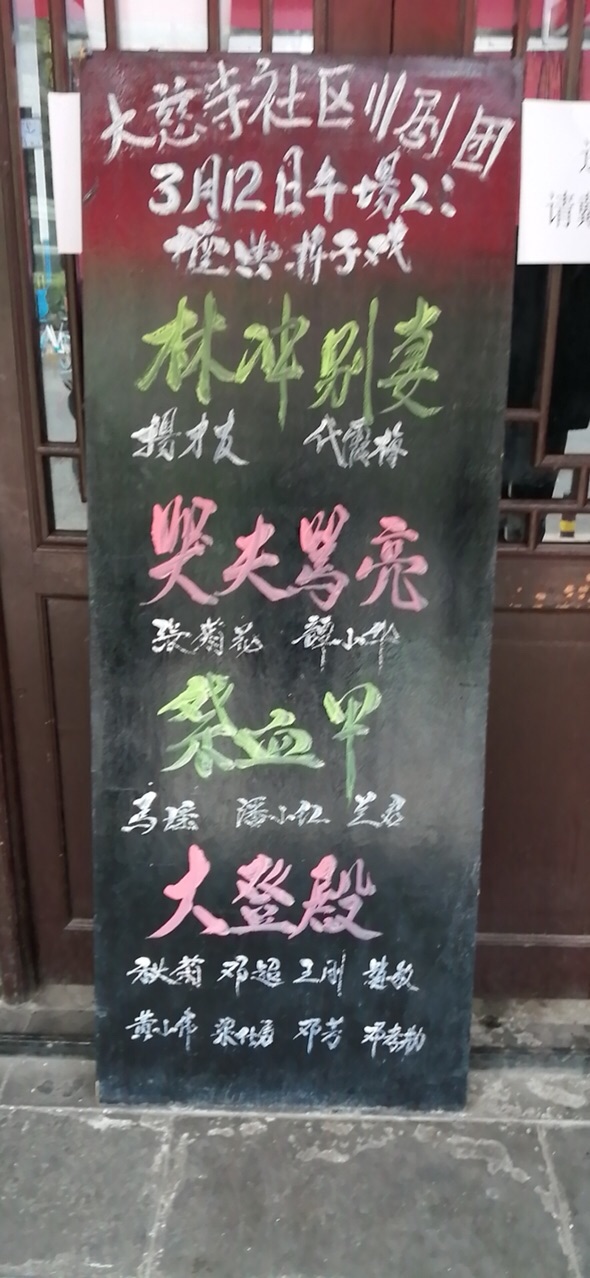 大慈寺社区川剧团
3月12日午場2:
經典折子戏
林冲别妻
楊才友 代霞梅
哭夫骂亮
张菊花 譚小华
祭血甲
马瑶 潘小红 兰君
大登殿
秋菊 邓超 王刚 敏
黄小伟 梁 邓芳 邓孝勤
请